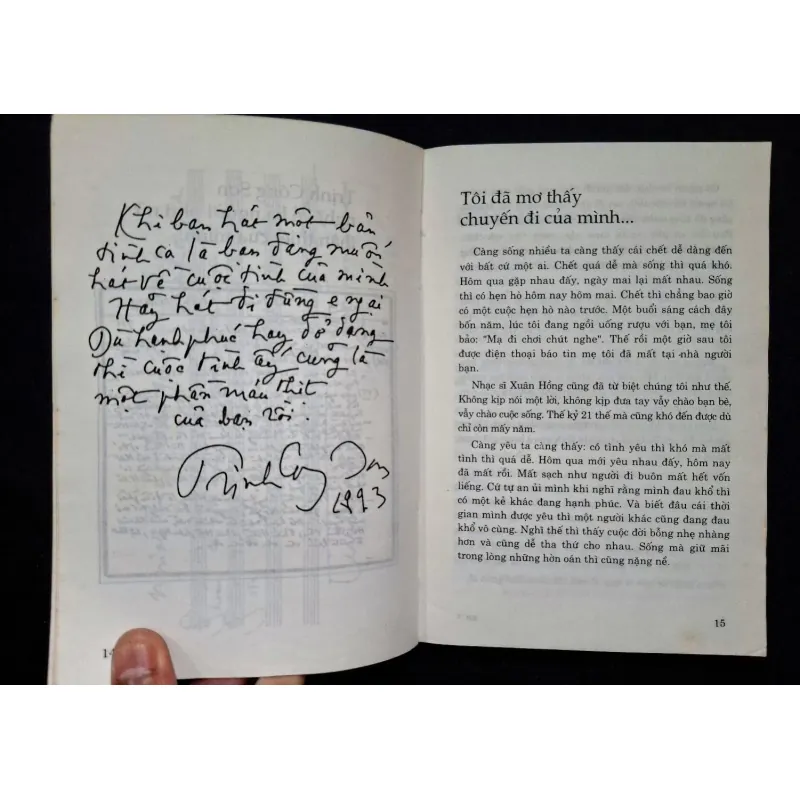 Khi bạn hát một bản
tình ca là bạn đang muốn
hát về cuộc tình của mình
Hãy hát đi đừng e ngại
Dù hạnh phúc hay dở dang
thì cuộc tình ấy cũng là
một phần máu thịt
của bạn rồi.
Trịnh Công Sơn
1993
14
Tôi đã mơ thấy
chuyến đi của mình...
Càng sống nhiều ta càng thấy cái chết dễ dàng đến
với bất cứ một ai. Chết quá dễ mà sống thì quá khó.
Hôm qua gặp nhau đấy, ngày mai lại mất nhau. Sống
thì có hẹn hò hôm nay hôm mai. Chết thì chẳng bao giờ
có một cuộc hẹn hò nào trước. Một buổi sáng cách đây
bốn năm, lúc tôi đang ngồi uống rượu với bạn, mẹ tôi
bảo: "Mạ đi chơi chút nghe". Thế rồi một giờ sau tôi
được điện thoại báo tin mẹ tôi đã mất tại nhà người
bạn.
Nhạc sĩ Xuân Hồng cũng đã từ biệt chúng tôi như thế.
Không kịp nói một lời, không kịp đưa tay vẫy chào bạn bè,
vẫy chào cuộc sống. Thế kỷ 21 thế mà cũng khó đến được dù
chỉ còn mấy năm.
Càng yêu ta càng thấy: có tình yêu thì khó mà mất
tình thì quá dễ. Hôm qua mới yêu nhau đấy, hôm nay
đã mất rồi. Mất sạch như người đi buôn mất hết vốn
liếng. Cứ tự an ủi mình khi nghĩ rằng mình đau khổ thì
có một kẻ khác đang hạnh phúc. Và biết đâu cái thời
gian mình được yêu thì một người khác cũng đang đau
khổ vô cùng. Nghĩ thế thì thấy cuộc đời bỗng nhẹ nhàng
hơn và cũng dễ tha thứ cho nhau. Sống mà giữ mãi
trong lòng những hờn oán thì cũng nặng nề.
15